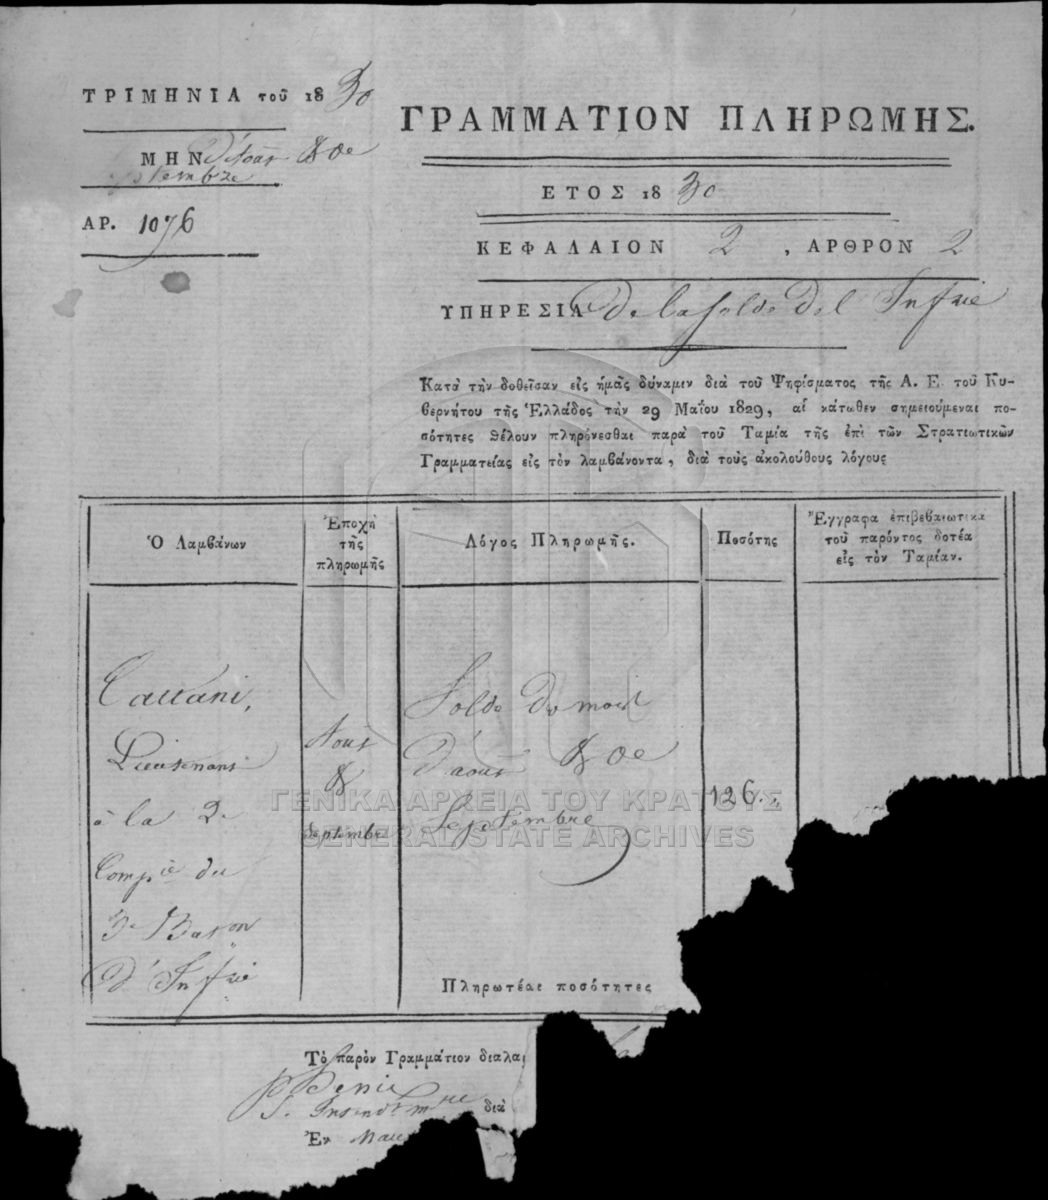 ΤΡΙΜΗΝΙΑ τοῦ 1830
ΜΗΝ d'Août & de
Septembre
ΑΡ. 1076
ΓΡΑΜΜΑΤΙΟΝ ΠΛΗΡΩΜΗΣ.
ΕΤΟΣ 1830
ΚΕΦΑΛΑΙΟΝ 2, ΑΡΘΡΟΝ 2
ΥΠΗΡΕΣΙΑ De la solde del Infrie
Κατὰ τὴν δοθεῖσαν εἰς ἡμᾶς δύναμιν διὰ τοῦ Ψηφίσματος τῆς Α. Ε. τοῦ Κυ-
βερνήτου τῆς Ἑλλάδος τὴν 29 Μαΐου 1829, αἱ κάτωθεν σημειούμεναι πο-
σότητες θέλουν πληρόνεσθαι παρὰ τοῦ Ταμία τῆς ἐπὶ τῶν Στρατιωτικῶν
Γραμματείας εἰς τὸν λαμβάνοντα, διὰ τοὺς ἀκολούθους λόγους
Ὁ Λαμβάνων
Ἐποχὴ
τῆς
πληρωμῆς
Λόγος Πληρωμῆς.
Ποσότης
Ἔγγραφα ἐπιβεβαιωτικὰ
τοῦ παρόντος δοτέα
εἰς τὸν Ταμίαν.
Lieutenant
à la 2e
Compie du
3e Baton
d'Infrie
Août
&
Septembre
Solde du mois
d'août & de
Septembre
126
Πληρωτέαι ποσότητες
Τὸ παρὸν Γραμμάτιον διαλα
διὰ
Ἐν
ΓΕΝΙΚΑ ΑΡΧΕΙΑ ΤΟΥ ΚΡΑΤΟΥΣ
GENERAL STATE ARCHIVES